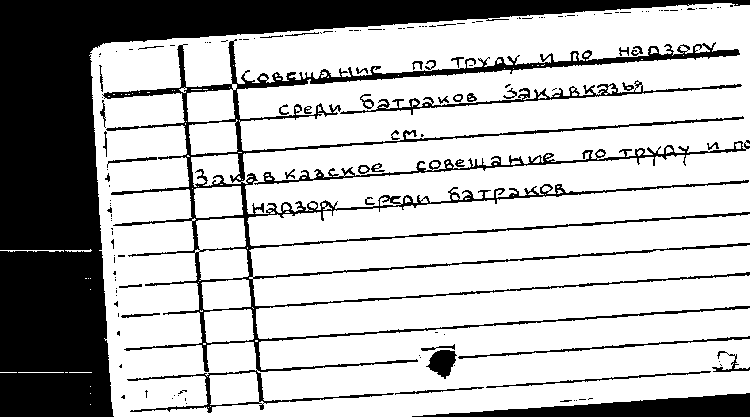 Совещание по труду и по надзору
среди батраков Закавказья
см.
Закавказское совещание по труду и по
надзору среди батраков.
57